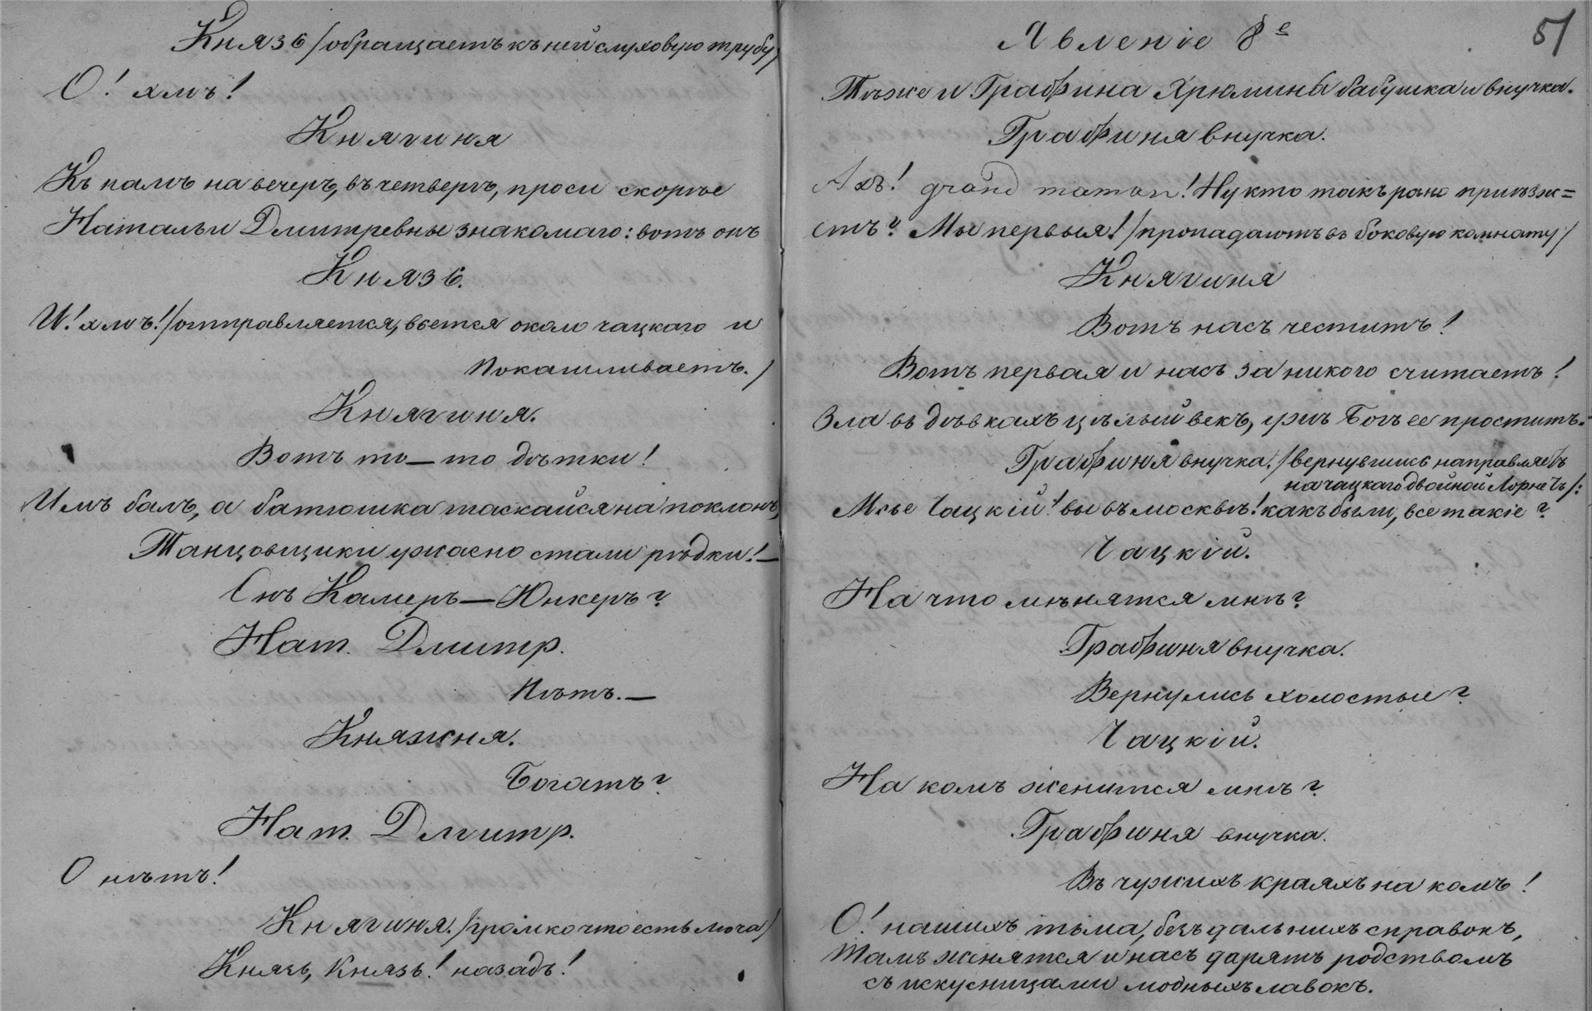 Князь /обращаетъ къ ней слуховую трубу/
О! хмъ!
Княгиня
Къ намъ на вечеръ, въ четвергъ, проси скорѣе
Натальи Дмитревны знакомаго: вотъ онъ
Князь.
И! хмъ! /отправляется, вьется около чацкаго и
покашливаетъ./
Княгиня.
Вотъ то — то дѣтки!
Имъ балъ, а батюшка таскайся на поклонъ,
Танцовщики ужасно стали рѣдки! —
Онъ Камеръ — Юнкеръ?
Нат. Дмитр.
Нѣтъ. —
Княжня.
Богатъ?
Нат. Дмитр.
О нѣтъ!
Княгиня. /громко что есть моча/
Князь, Князь! назадъ!
51
Явленіе 8е
Тѣже и Графина Хрюмины бабушка и внучка.
Графиня внучка.
Ахъ! grand maman! Ну кто такъ рано приѣзж=
етъ? Мы первыя! /пропадаютъ въ боковую комнату/
Княгиня
Вотъ насъ честитъ!
Вотъ первая и насъ за никого считаетъ!
Зла въ дѣвкахъ цѣлый векъ, ужъ Богъ ее проститъ.
Графиня внучка. /вернувшись направляетъ
на чацкаго двойной Лорнетъ/:
Мсье Чацкій! вы въ москвѣ! какъ были, все такіе?
Чацкій.
На что мѣнятся мнѣ?
Графиня внучка.
Вернулись холостые?
Чацкій.
На комъ женится мнѣ?
Графиня внучка.
Въ чужихъ краяхъ на комъ!
О! нашихъ тьма, безъ дальнихъ справокъ,
Тамъ женятся и насъ дарятъ родствомъ
съ искусницами модныхъ лавокъ.